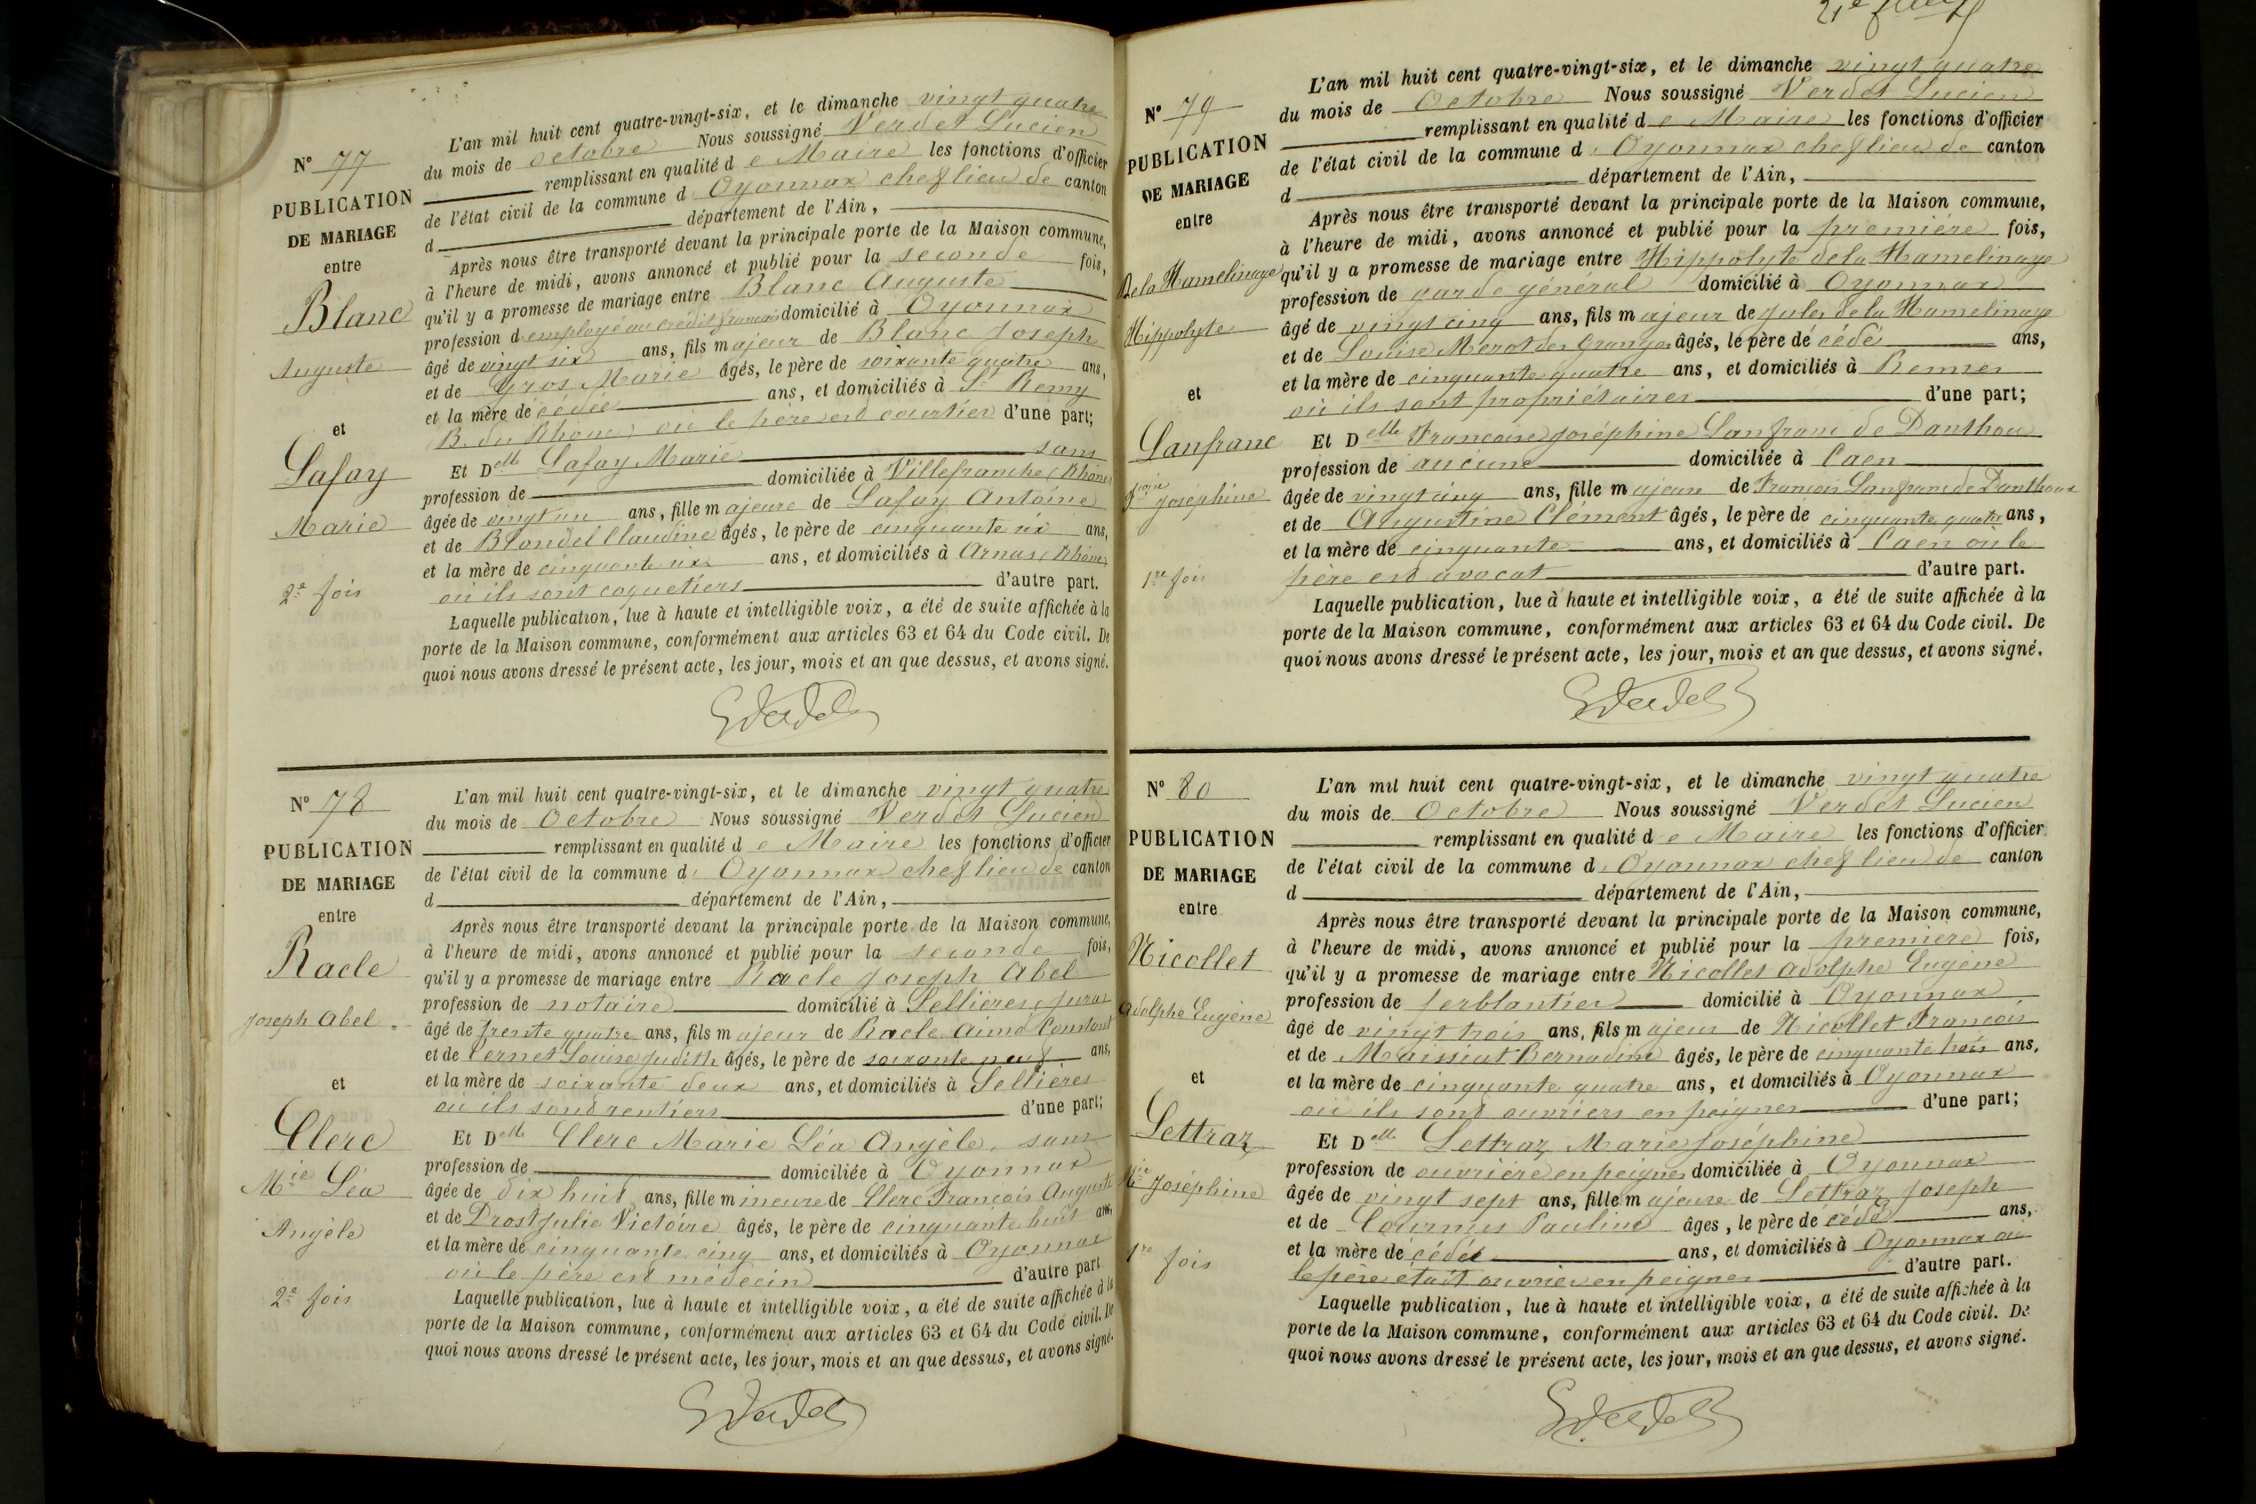 N° 77
PUBLICATION
DE MARIAGE
entre
Blanc
Auguste
et
Lafay
Marie
2e fois
L'an mil huit cent quatre-vingt-six, et le dimanche vingt quatre
du mois de octobre Nous soussigné Verdet Lucien
remplissant en qualité de Maire les fonctions d'officier
de l'état civil de la commune d Oyonnax chef lieu de canton
d département de l'Ain,
Après nous être transporté devant la principale porte de la Maison commune,
à l'heure de midi, avons annoncé et publié pour la seconde fois,
qu'il y a promesse de mariage entre Blanc Auguste
profession d employé au crédit français domicilié à Oyonnax
âgé de vingt six ans, fils majeur de Blanc Joseph
et de Gros Marie âgés, le père de soixante quatre ans,
et la mère de cédée ans, et domiciliés à St Remy
(B. du Rhône) où le père est courtier d'une part;
Et Delle Lafay Marie sans
profession de domiciliée à Villefranche (Rhône)
âgée de vingt un ans, fille majeure de Lafay Antoine
et de Blondel Claudine âgés, le père de cinquante six ans,
et la mère de cinquante six ans, et domiciliés à Arnas (Rhône)
où ils sont coquetiers d'autre part.
Laquelle publication, lue à haute et intelligible voix, a été de suite affichée à la
porte de la Maison commune, conformément aux articles 63 et 64 du Code civil. De
quoi nous avons dressé le présent acte, les jour, mois et an que dessus, et avons signé.
N° 78
PUBLICATION
DE MARIAGE
entre
Racle
Joseph Abel
et
Clerc
Mie Léa
Angèle
2e fois
L'an mil huit cent quatre-vingt-six, et le dimanche vingt quatre
du mois de Octobre Nous soussigné Verdet Lucien
remplissant en qualité de Maire les fonctions d'officier
de l'état civil de la commune d'Oyonnax chef lieu de canton
d département de l'Ain,
Après nous être transporté devant la principale porte de la Maison commune,
à l'heure de midi, avons annoncé et publié pour la seconde fois,
qu'il y a promesse de mariage entre Racle Joseph Abel
profession de notaire domicilié à Sellières, Jura
âgé de trente quatre ans, fils majeur de Racle Aimé Constant
et de Cernet Louise Judith âgés, le père de soixante neuf ans,
et la mère de soixante deux ans, et domiciliés à Sellières
où ils sont rentiers d'une part;
Et Delle Clerc Marie Léa Angèle, sans
profession de domiciliée à Oyonnax
âgée de dix huit ans, fille mineure de Clerc François Auguste
et de Drost Julie Victoire âgés, le père de cinquante huit ans,
et la mère de cinquante cinq ans, et domiciliés à Oyonnax
où le père est médecin d'autre part
Laquelle publication, lue à haute et intelligible voix, a été de suite affichée à la
porte de la Maison commune, conformément aux articles 63 et 64 du Code civil. De
quoi nous avons dressé le présent acte, les jour, mois et an que dessus, et avons signé.
N° 79
PUBLICATION
DE MARIAGE
entre
De la Hamelinaye
Hippolyte
et
Lanfranc
Joséphine
1re fois
L'an mil huit cent quatre-vingt-six, et le dimanche vingt quatre
du mois de Octobre Nous soussigné Verdet Lucien
remplissant en qualité de Maire les fonctions d'officier
de l'état civil de la commune d'Oyonnax chef lieu de canton
d département de l'Ain,
Après nous être transporté devant la principale porte de la Maison commune,
à l'heure de midi, avons annoncé et publié pour la première fois,
qu'il y a promesse de mariage entre Hippolyte de la Hamelinaye
profession de garde général domicilié à Oyonnax
âgé de vingt cinq ans, fils majeur de Jules de la Hamelinaye
et de Louise Merot des Granges âgés, le père dé cédé ans,
et la mère de cinquante quatre ans, et domiciliés à Rennes
où ils sont propriétaires d'une part;
Et Delle Françoise Joséphine Lanfranc de Panthou
profession de aucune domiciliée à Caen
âgée de vingt cinq ans, fille majeure de François Lanfranc de Panthou
et de Augustine Clément âgés, le père de cinquante quatre ans,
et la mère de cinquante ans, et domiciliés à Caen où le
père est avocat d'autre part.
Laquelle publication, lue à haute et intelligible voix, a été de suite affichée à la
porte de la Maison commune, conformément aux articles 63 et 64 du Code civil. De
quoi nous avons dressé le présent acte, les jour, mois et an que dessus, et avons signé.
N° 80
PUBLICATION
DE MARIAGE
entre
Nicollet
Adolphe Eugène
et
Lettraz
Mie Joséphine
1re fois
L'an mil huit cent quatre-vingt-six, et le dimanche vingt quatre
du mois de Octobre Nous soussigné Verdet Lucien
remplissant en qualité de Maire les fonctions d'officier
de l'état civil de la commune d'Oyonnax chef lieu de canton
d département de l'Ain,
Après nous être transporté devant la principale porte de la Maison commune,
à l'heure de midi, avons annoncé et publié pour la première fois,
qu'il y a promesse de mariage entre Nicollet Adolphe Eugène
profession de ferblantier domicilié à Oyonnax
âgé de vingt trois ans, fils majeur de Nicollet François
et de Maissiat Bernadine âgés, le père de cinquante trois ans,
et la mère de cinquante quatre ans, et domiciliés à Oyonnax
où ils sont ouvriers en peignes d'une part;
Et Delle Lettraz Marie Joséphine
profession de ouvrière en peignes domiciliée à Oyonnax
âgée de vingt sept ans, fille majeure de Lettraz Joseph
et de Tournus Pauline âges, le père dé cédé ans,
et la mère dé cédée ans, et domiciliés à Oyonnax où
le père était ouvrier en peignes d'autre part.
Laquelle publication, lue à haute et intelligible voix, a été de suite affichée à la
porte de la Maison commune, conformément aux articles 63 et 64 du Code civil. De
quoi nous avons dressé le présent acte, les jour, mois et an que dessus, et avons signé.